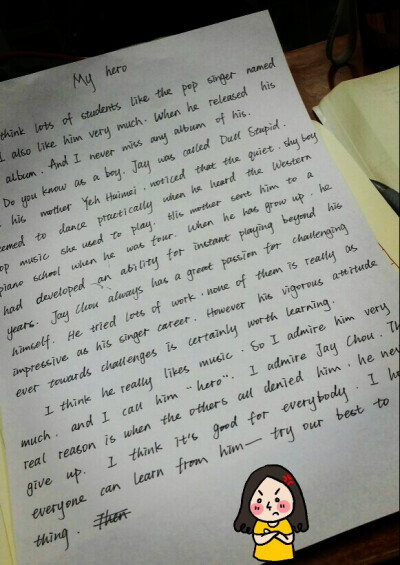 My hero
think lots of students like the pop singer named
I also like him very much. When he released his
album. And I never miss any album of his.
Do you know as a boy. Jay was called Dull Stupid.
his mother Yeh Huimei. noticed that the quiet. shy boy
emed to dance practically when he heard the Western
op music she used to play. His mother sent him to a
piano school when he was four. When he has grow up. he
had developed an ability for instant playing beyond his
years. Jay Chou always has a great passion for challenging
himself. He tried lots of work. none of them is really as
impressive as his singer career. However his vigorous attitude
ever towards challenges is certainly worth learning.
I think he really likes music. So I admire him very
much. and I call him "hero". I admire Jay Chou. Th
real reason is when the others all denied him. he nev
give up. I think it's good for everybody. I ho
everyone can learn from him— try our best to
thing. Then